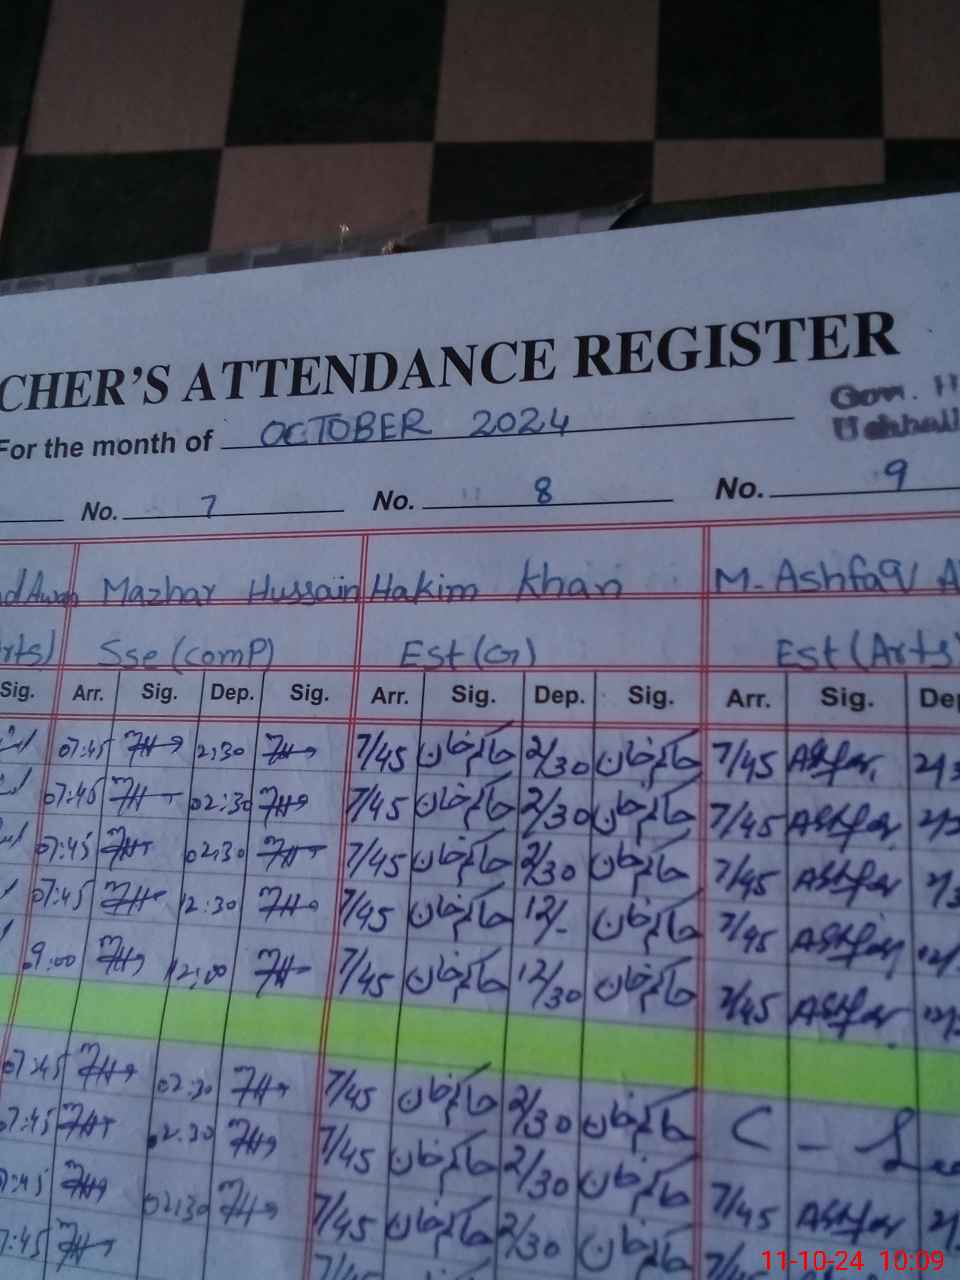 CHER'S ATTENDANCE REGISTER
For the month of OCTOBER 2024
Gov. H
No. 7 No. 8 No. 9
Mazhar Hussain Hakim Khan M. Ashfaq A
rts) Sse (comp) Est (G) Est (Arts)
Sig. Arr. Sig. Dep. Sig. Arr. Sig. Dep. Sig. Arr. Sig. Dep
07:45 2:30 7/45 حاکم خان 2/30 حاکم خان 7/45 Ashfaq 2/3
07:45 02:30 7/45 حاکم خان 2/30 حاکم خان 7/45 Ashfaq 2/3
07:45 02:30 7/45 حاکم خان 2/30 حاکم خان 7/45 Ashfaq 2/3
07:45 12:30 7/45 حاکم خان 12/- حاکم خان 7/45 Ashfaq 12/
9:00 12:00 7/45 حاکم خان 12/30 حاکم خان 7/45 Ashfaq 12/
07:45 02:30 7/45 حاکم خان 2/30 حاکم خان C - Lea
07:45 02:30 7/45 حاکم خان 2/30 حاکم خان 7/45 Ashfaq 2/
7:45 02:30 7/45 حاکم خان 2/30 حاکم خان 7/45
7:45 7/45
11-10-24 10:09